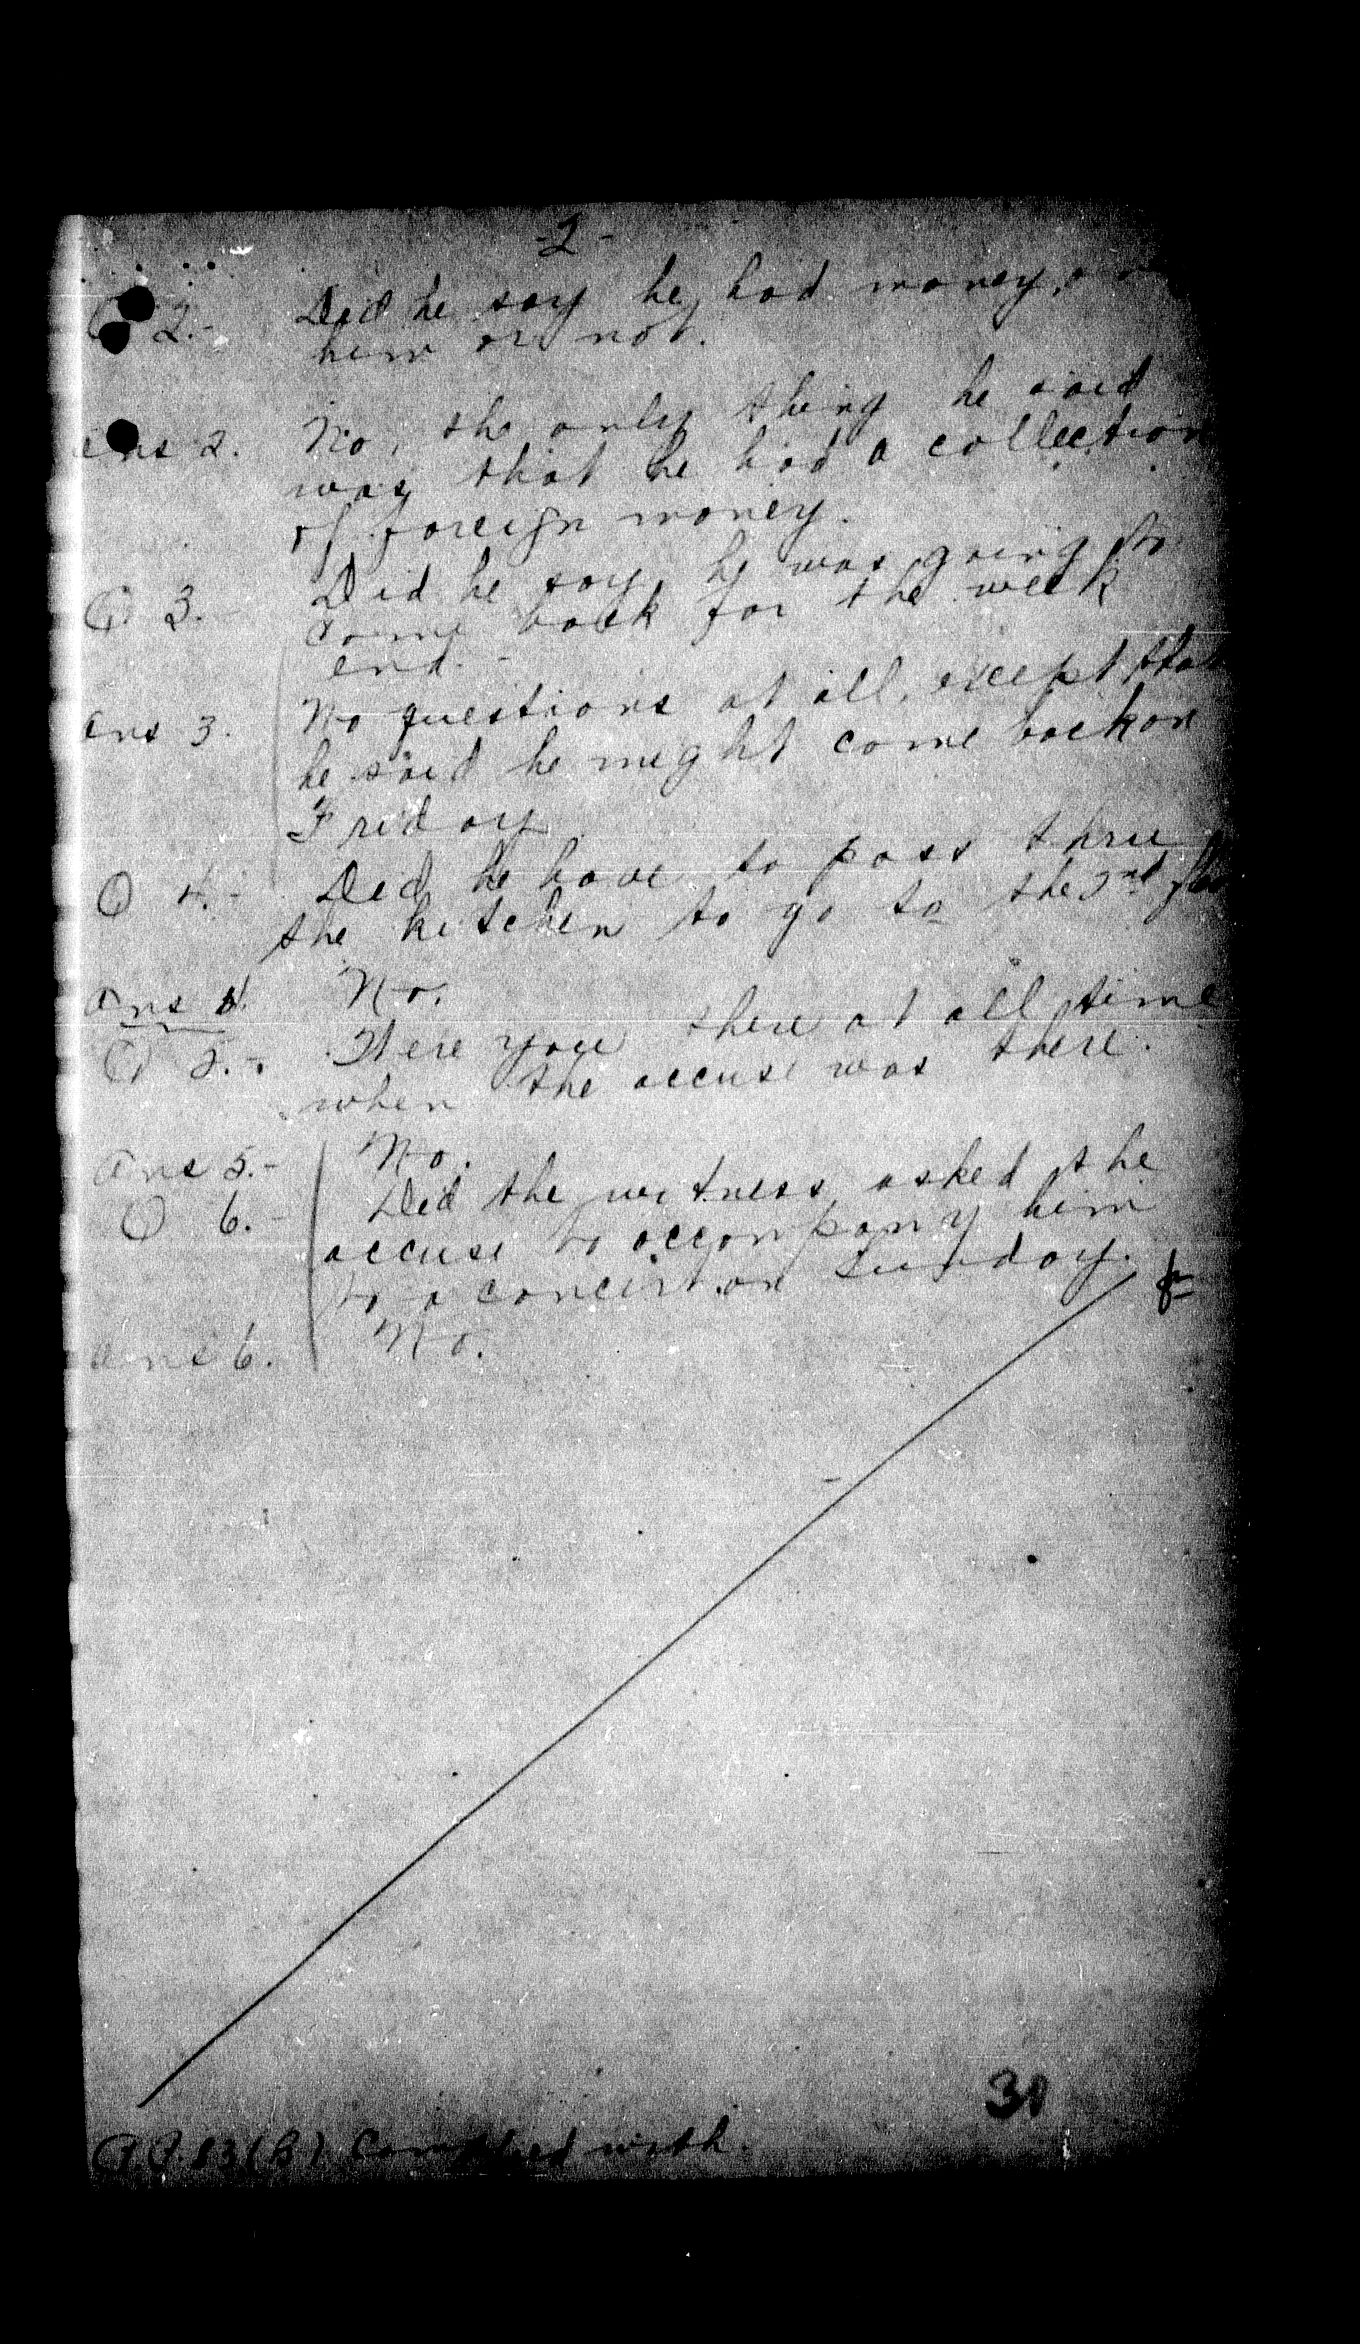 -2-
Q 2.- Did he say he had money, on
him or not.
Ans 2. No, the only thing he said
was that he had a collection
of foreign money.
Q 3.- Did he say he was going to
come back for the week
end.-
Ans 3. No questions at all, except that
he said he might come back on
Friday.
Q 4.- Did he have to pass thru
the kitchen to go to the 2nd floor
Ans 4. No.
Q 5.- Were you there at all time
when the accuse was there.
Ans 5.- No.
Q 6.- Did the witness asked the
accuse to accompany him
to a concert on Sunday.
Ans 6. No.
31
R.P. 83(B) Complied with.